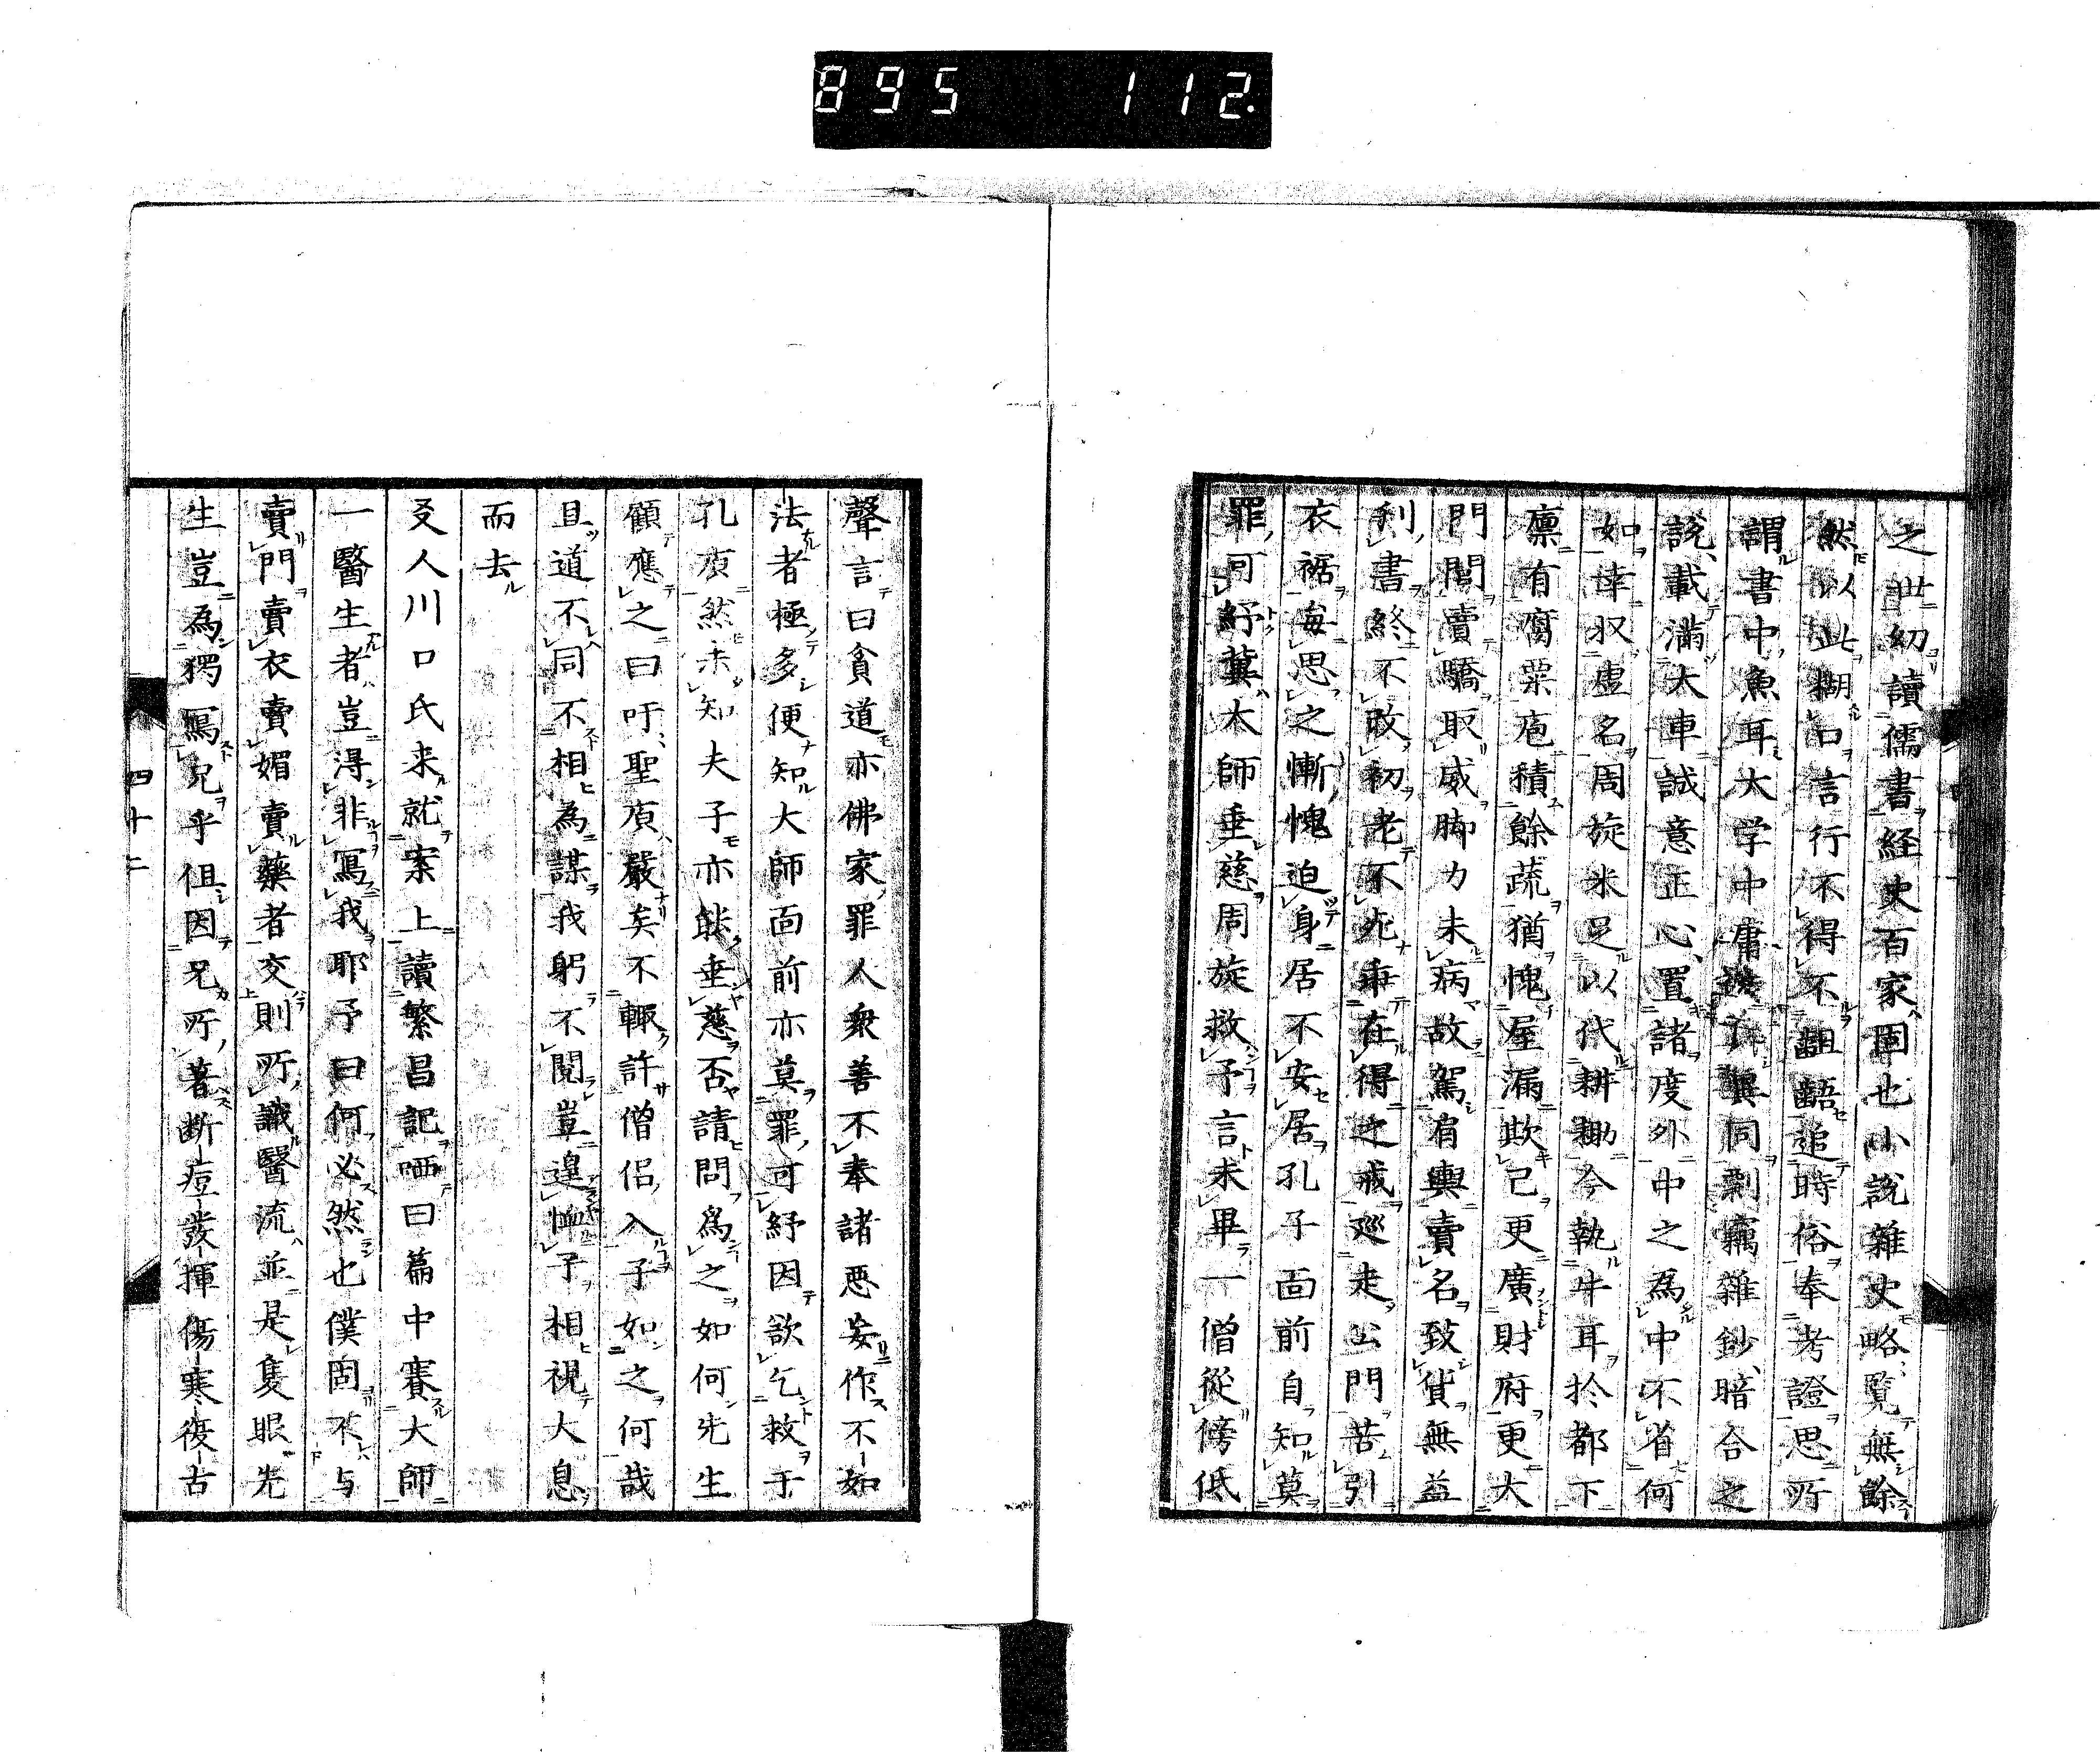 895 112.
之世幼讀儒書経史百家固也小說雜史略覧無餘
然以此糊口言行不得不齟齬追時俗奉考證思所
謂書中魚耳大学中庸異同剽竊雜鈔暗合之
說載滿大車誠意正心置諸度外中之為中不省何
如倖収虚名周旋米足以代耕耡今執牛耳於都下
廩有腐粟庖積餘蔬猶愧屋漏欺己更廣財府更大
門閭賣驕取威脚力未病故駕肩輿賣名致貨無益
利書終不改初老不死垂在得之戒巡走公門苦引
衣裾每思之慚愧迫身居不安居孔子面前自知莫
罪可紓冀大師垂慈周旋救予言未畢一僧從傍低
聲言曰貪道亦佛家罪人衆善不奉諸悪妄作不如
法者極多便知大師面前亦莫罪可紓因欲乞救于
孔廟然未知夫子亦能垂慈否請問為之如何先生
顧應之曰吁聖廟嚴矣不輙許僧侶入子如之何哉
且道不同不相為謀我躬不閲豈遑恤予相視大息
而去
友人川口氏来就案上讀繁昌記哂曰篇中賽大師
一醫生者豈得非寫我耶予曰何必然也僕固不与
賣門賣衣賣媚賣藥者交則所識醫流並是隻眼先
生豈為獨寫兄乎但因兄所著断痘發揮傷寒復古
四十二